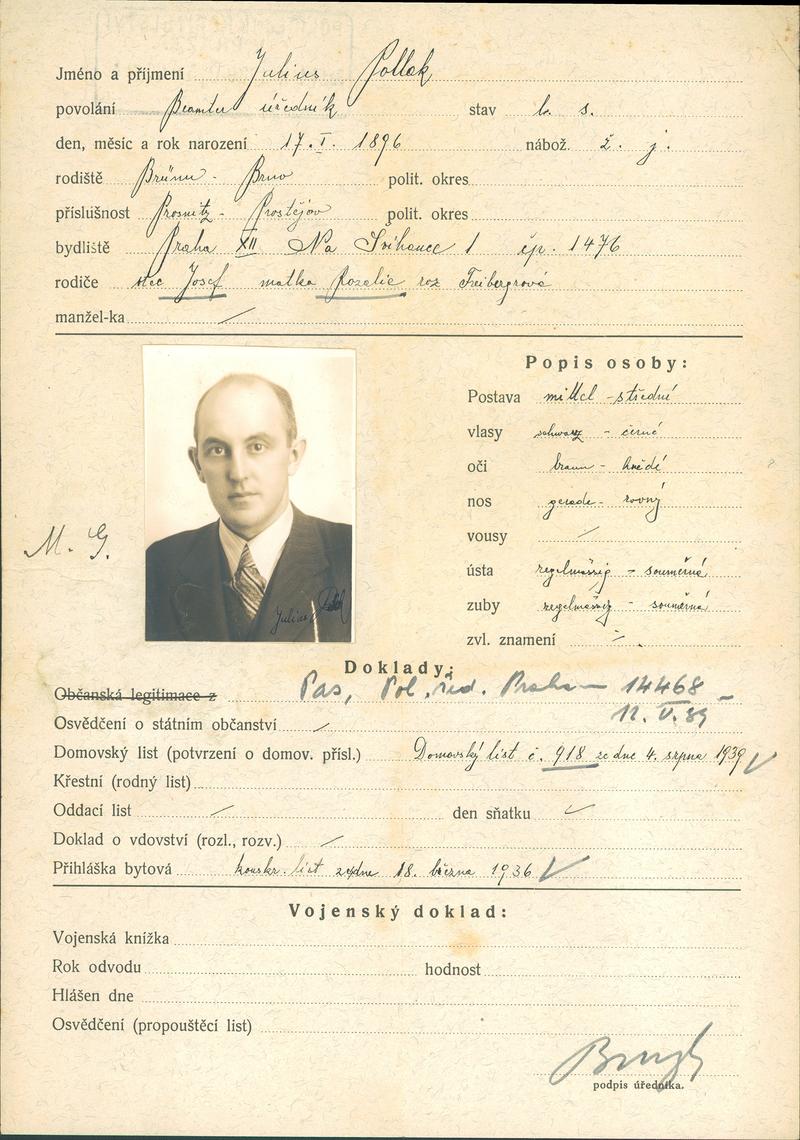 Jméno a příjmení Julius Pollak
povolání Beamter úředník stav b. s.
den, měsíc a rok narození 17. I. 1896 nábož. ž. j.
rodiště Brünn - Brno polit. okres
příslušnost Prosnitz - Prostějov polit. okres
bydliště Praha XII Na Švihance 1 čp. 1476
rodiče otec Josef matka Rozalie roz Freibergrová
manžel-ka
Popis osoby:
Postava mittel - střední
vlasy schwarz - černé
oči braun - hnědé
nos gerade - rovný
vousy
ústa regelmässig - souměrná
zuby regelmässig - souměrná
zvl. znamení
M. G.
Julius Pollak
Doklady:
Občanská legitimace z Pas, Pol. řed. Praha - 14468 -
12. V. 39
Osvědčení o státním občanství
Domovský list (potvrzení o domov. přísl.) Domovský list č. 918 ze dne 4. srpna 1939
Křestní (rodný list)
Oddací list den sňatku
Doklad o vdovství (rozl., rozv.)
Přihláška bytová konskr. list ze dne 18. března 1936
Vojenský doklad:
Vojenská knížka
Rok odvodu hodnost
Hlášen dne
Osvědčení (propouštěcí list)
podpis úředníka.